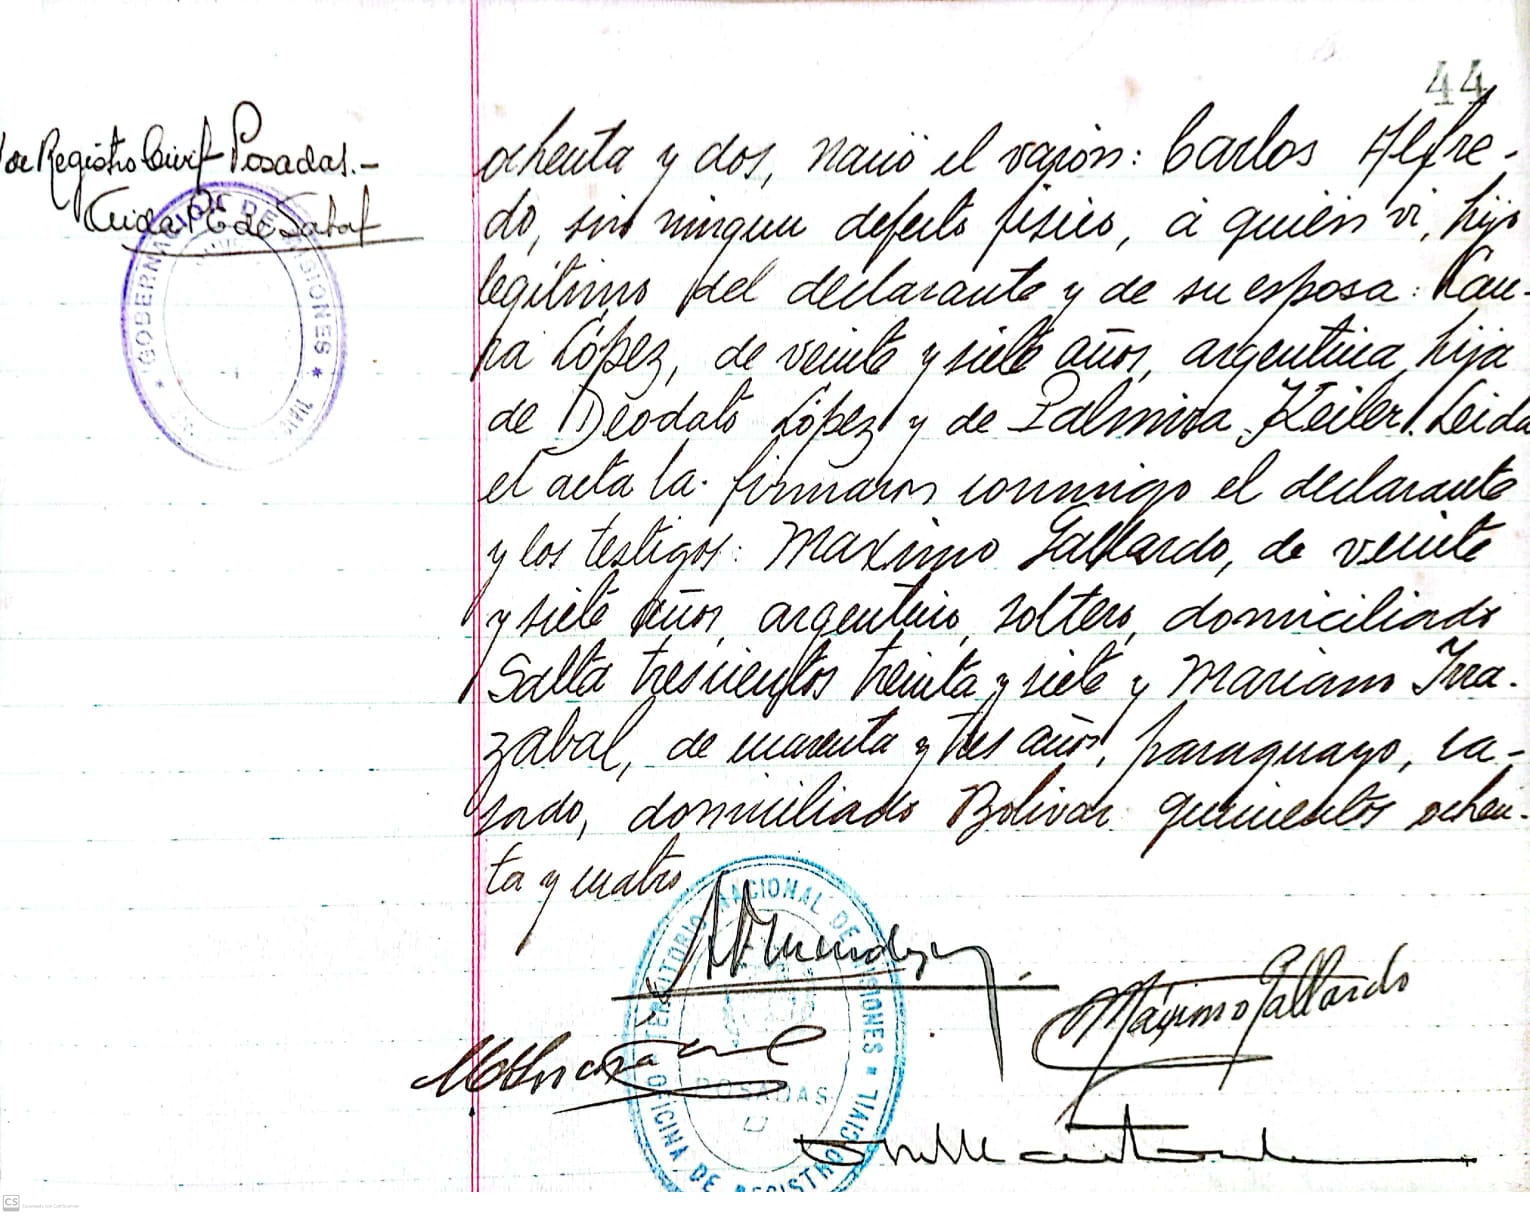 44
de Registro Civil Posadas.-
ochenta y dos, nació el varón: Carlos Alfre-
do, sin ningun defecto físico, á quién vi, hijo
legítimo del declarante y de su esposa: Lau-
ra López, de veinte y siete años, argentina, hija
de Deodato López y de Palmira Keiler. Leida
el acta la firmaron conmigo el declarante
y los testigos: Maximo Gallardo, de veinte
y siete años, argentino, soltero, domiciliado
Salta trescientos treinta y siete y Mariano Irra-
zabal, de cuarenta y tres años, paraguayo, ca-
sado, domiciliado Bolivar quinientos ochen-
ta y cuatro
GOBERN DE MISIONES
TERRITORIO NACIONAL DE MISIONES
OFICINA DE REGISTRO CIVIL
POSADAS
Máximo Gallardo
CS
Scanned with CamScanner